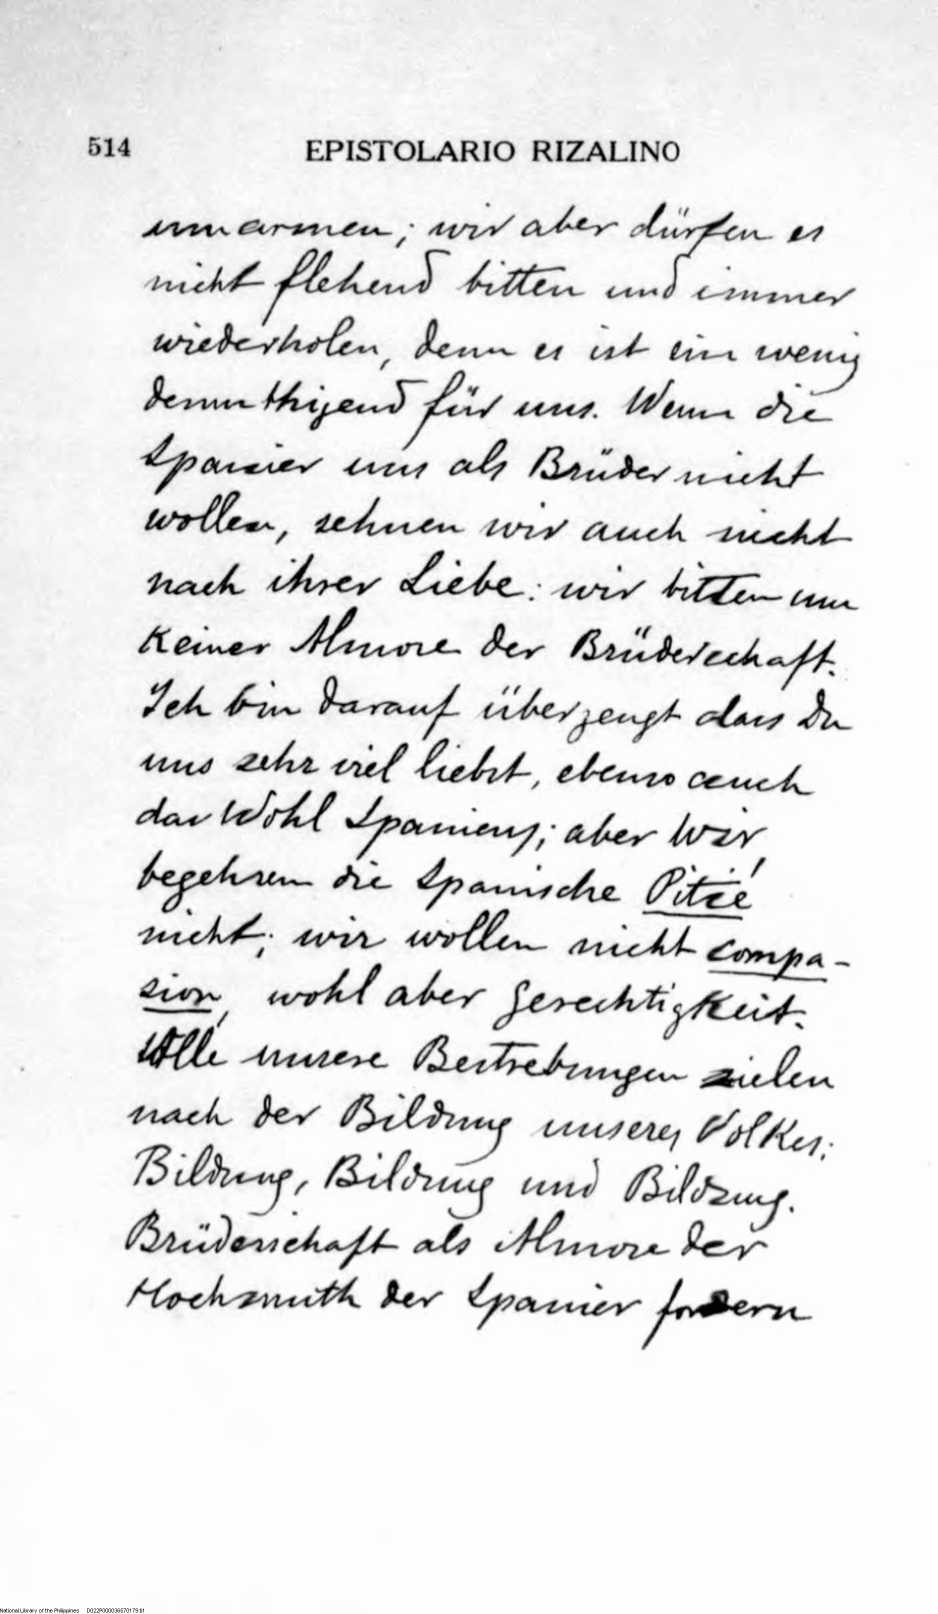 514 EPISTOLARIO RIZALINO
umarmen; wir aber dürfen es
nicht flehend bitten und immer
wiederholen, denn es ist ein wenig
demuthigend für uns. Wenn die
Spanier uns als Brüder nicht
wollen, sehnen wir auch nicht
nach ihrer Liebe: wir bitten um
keiner Almose der Brüderschaft.
Ich bin darauf überzeugt dass Du
uns sehr viel liebst, ebenso auch
das Wohl Spaniens; aber wir
begehren die Spanische Pitié
nicht; wir wollen nicht compa-
sion, wohl aber Gerechtigkeit.
Alle unsere Bestrebungen zielen
nach der Bildung unseres Volkes:
Bildung, Bildung und Bildung.
Brüderschaft als Almose der
Hochmuth der Spanier fordern
National Library of the Philippines